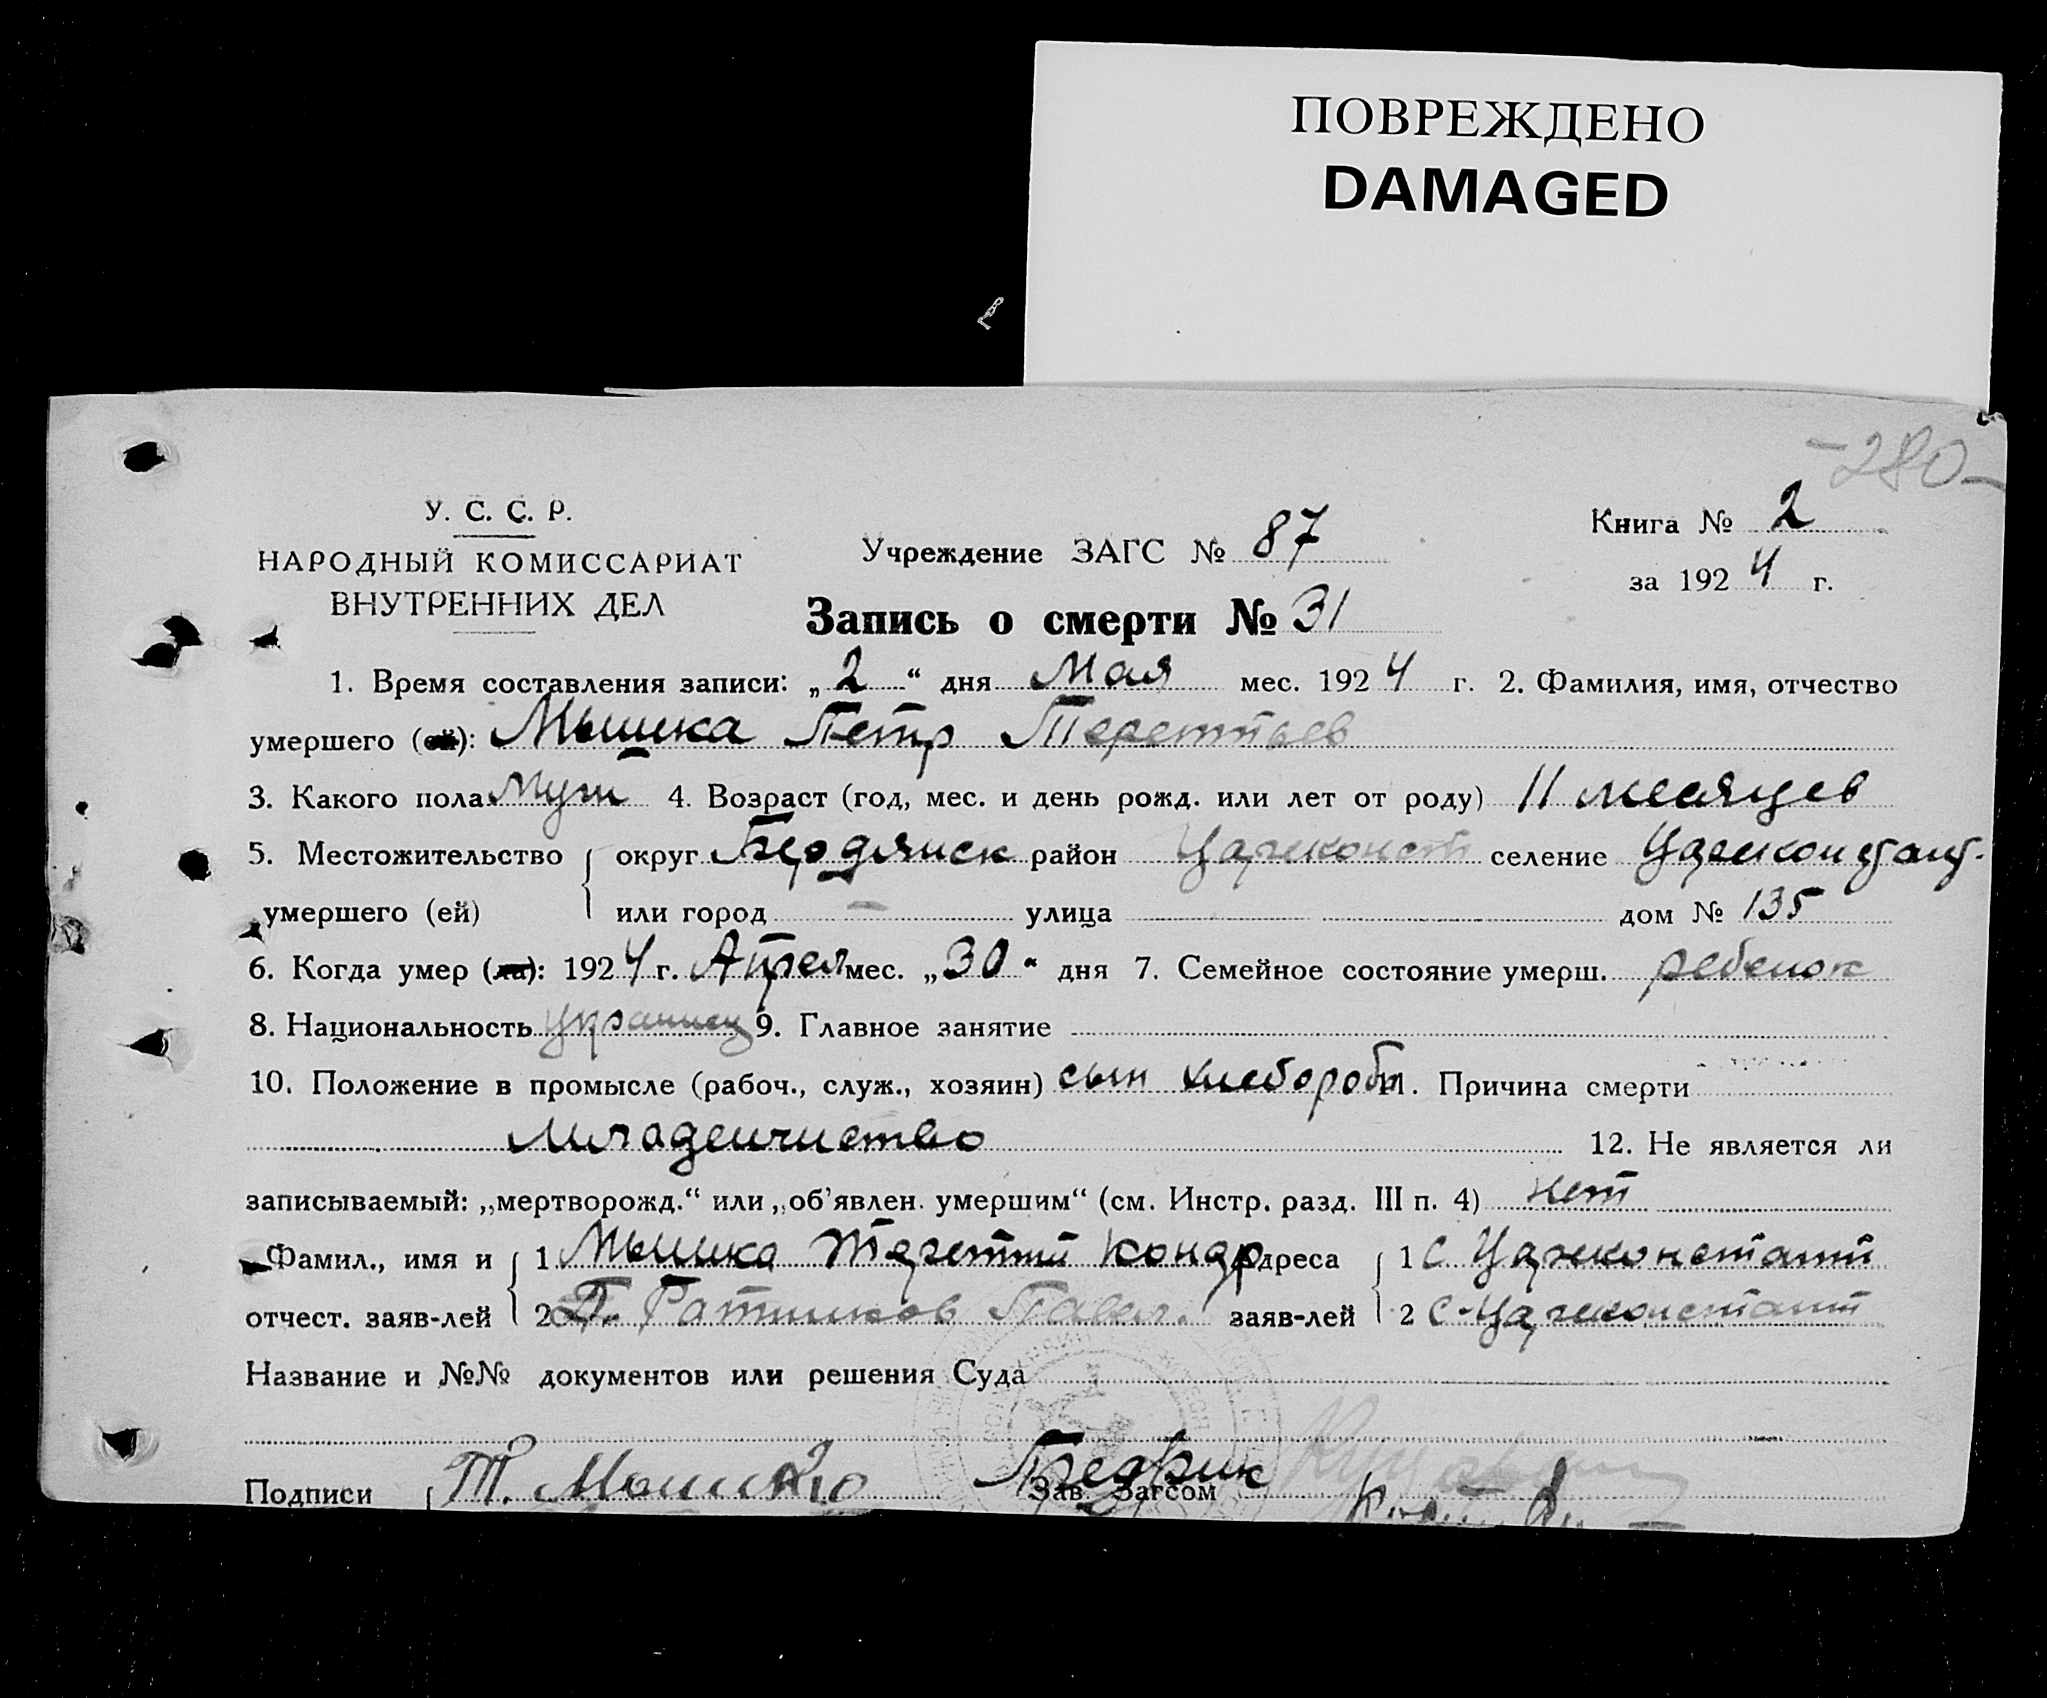 ПОВРЕЖДЕНО
DAMAGED
-280-
У. С. С. Р.
НАРОДНЫЙ КОМИССАРИАТ
ВНУТРЕННИХ ДЕЛ
Учреждение ЗАГС № 87
Книга № 2
за 1924 г.
Запись о смерти № 31
1. Время составления записи: „2“ дня Мая мес. 1924 г. 2. Фамилия, имя, отчество
умершего (ей): Мышка Петр Терентьев
3. Какого пола муж 4. Возраст (год, мес. и день рожд. или лет от роду) 11 месяцев
5. Местожительство округ Бердянск район Цареконст селение Цареконстант.
умершего (ей) или город — улица дом № 135
6. Когда умер (ла): 1924 г. Апрел мес. „30“ дня 7. Семейное состояние умерш. ребенок
8. Национальность украинец 9. Главное занятие
10. Положение в промысле (рабоч., служ., хозяин) сын хлебороба 11. Причина смерти
Младенчиство
12. Не является ли
записываемый: „мертворожд.“ или „об'явлен. умершим“ (см. Инстр. разд. III п. 4) нет
Фамил., имя и 1 Мышка Терентий Кондр Адреса 1 с Цареконстант
отчест. заяв-лей 2 Ратников Павел. заяв-лей 2 с-Цареконстант
Название и №№ документов или решения Суда
Подписи Т. Мышка Зав. Загсом